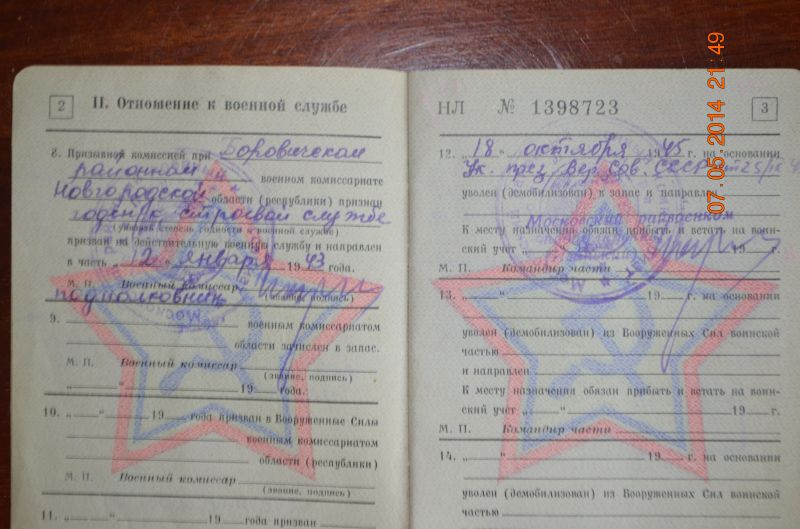 2
II. Отношение к военной службе
8. Призывной комиссией при Боровичском
районном военном комиссариате
Новгородской области (республики) признан
годен к строевой службе
(указать степень годности к военной службе)
призван на действительную военную службу и направлен
в часть „2“ января 1943 года.
М. П. Военный комиссар
подполковник (звание, подпись)
9. военным комиссариатом
области зачислен в запас.
М. П. Военный комиссар
(звание, подпись)
„ “ 19 года.
10. „ “ 19 года призван в Вооруженные Силы
военным комиссариатом
области (республики)
М. П. Военный комиссар
(звание, подпись)
11. „ “ 19 года призван
НЛ № 1398723
3
12. „18“ октября 1945 г. на основании
Ук. през. Вер. Сов. СССР от 25/IX 45
уволен (демобилизован) в запас и направлен
Московский райвоенком
К месту назначения обязан прибыть и встать на воин-
ский учет 19 г.
М. П. Командир части
13. „ “ 19 г. на основании
уволен (демобилизован) из Вооруженных Сил воинской
частью
и направлен
К месту назначения обязан прибыть и встать на воин-
ский учет „ “ 19 г.
М. П. Командир части
14. „ “ 19 г. на основании
уволен (демобилизован) из Вооруженных Сил воинской
частью
07.05.2014 21:49